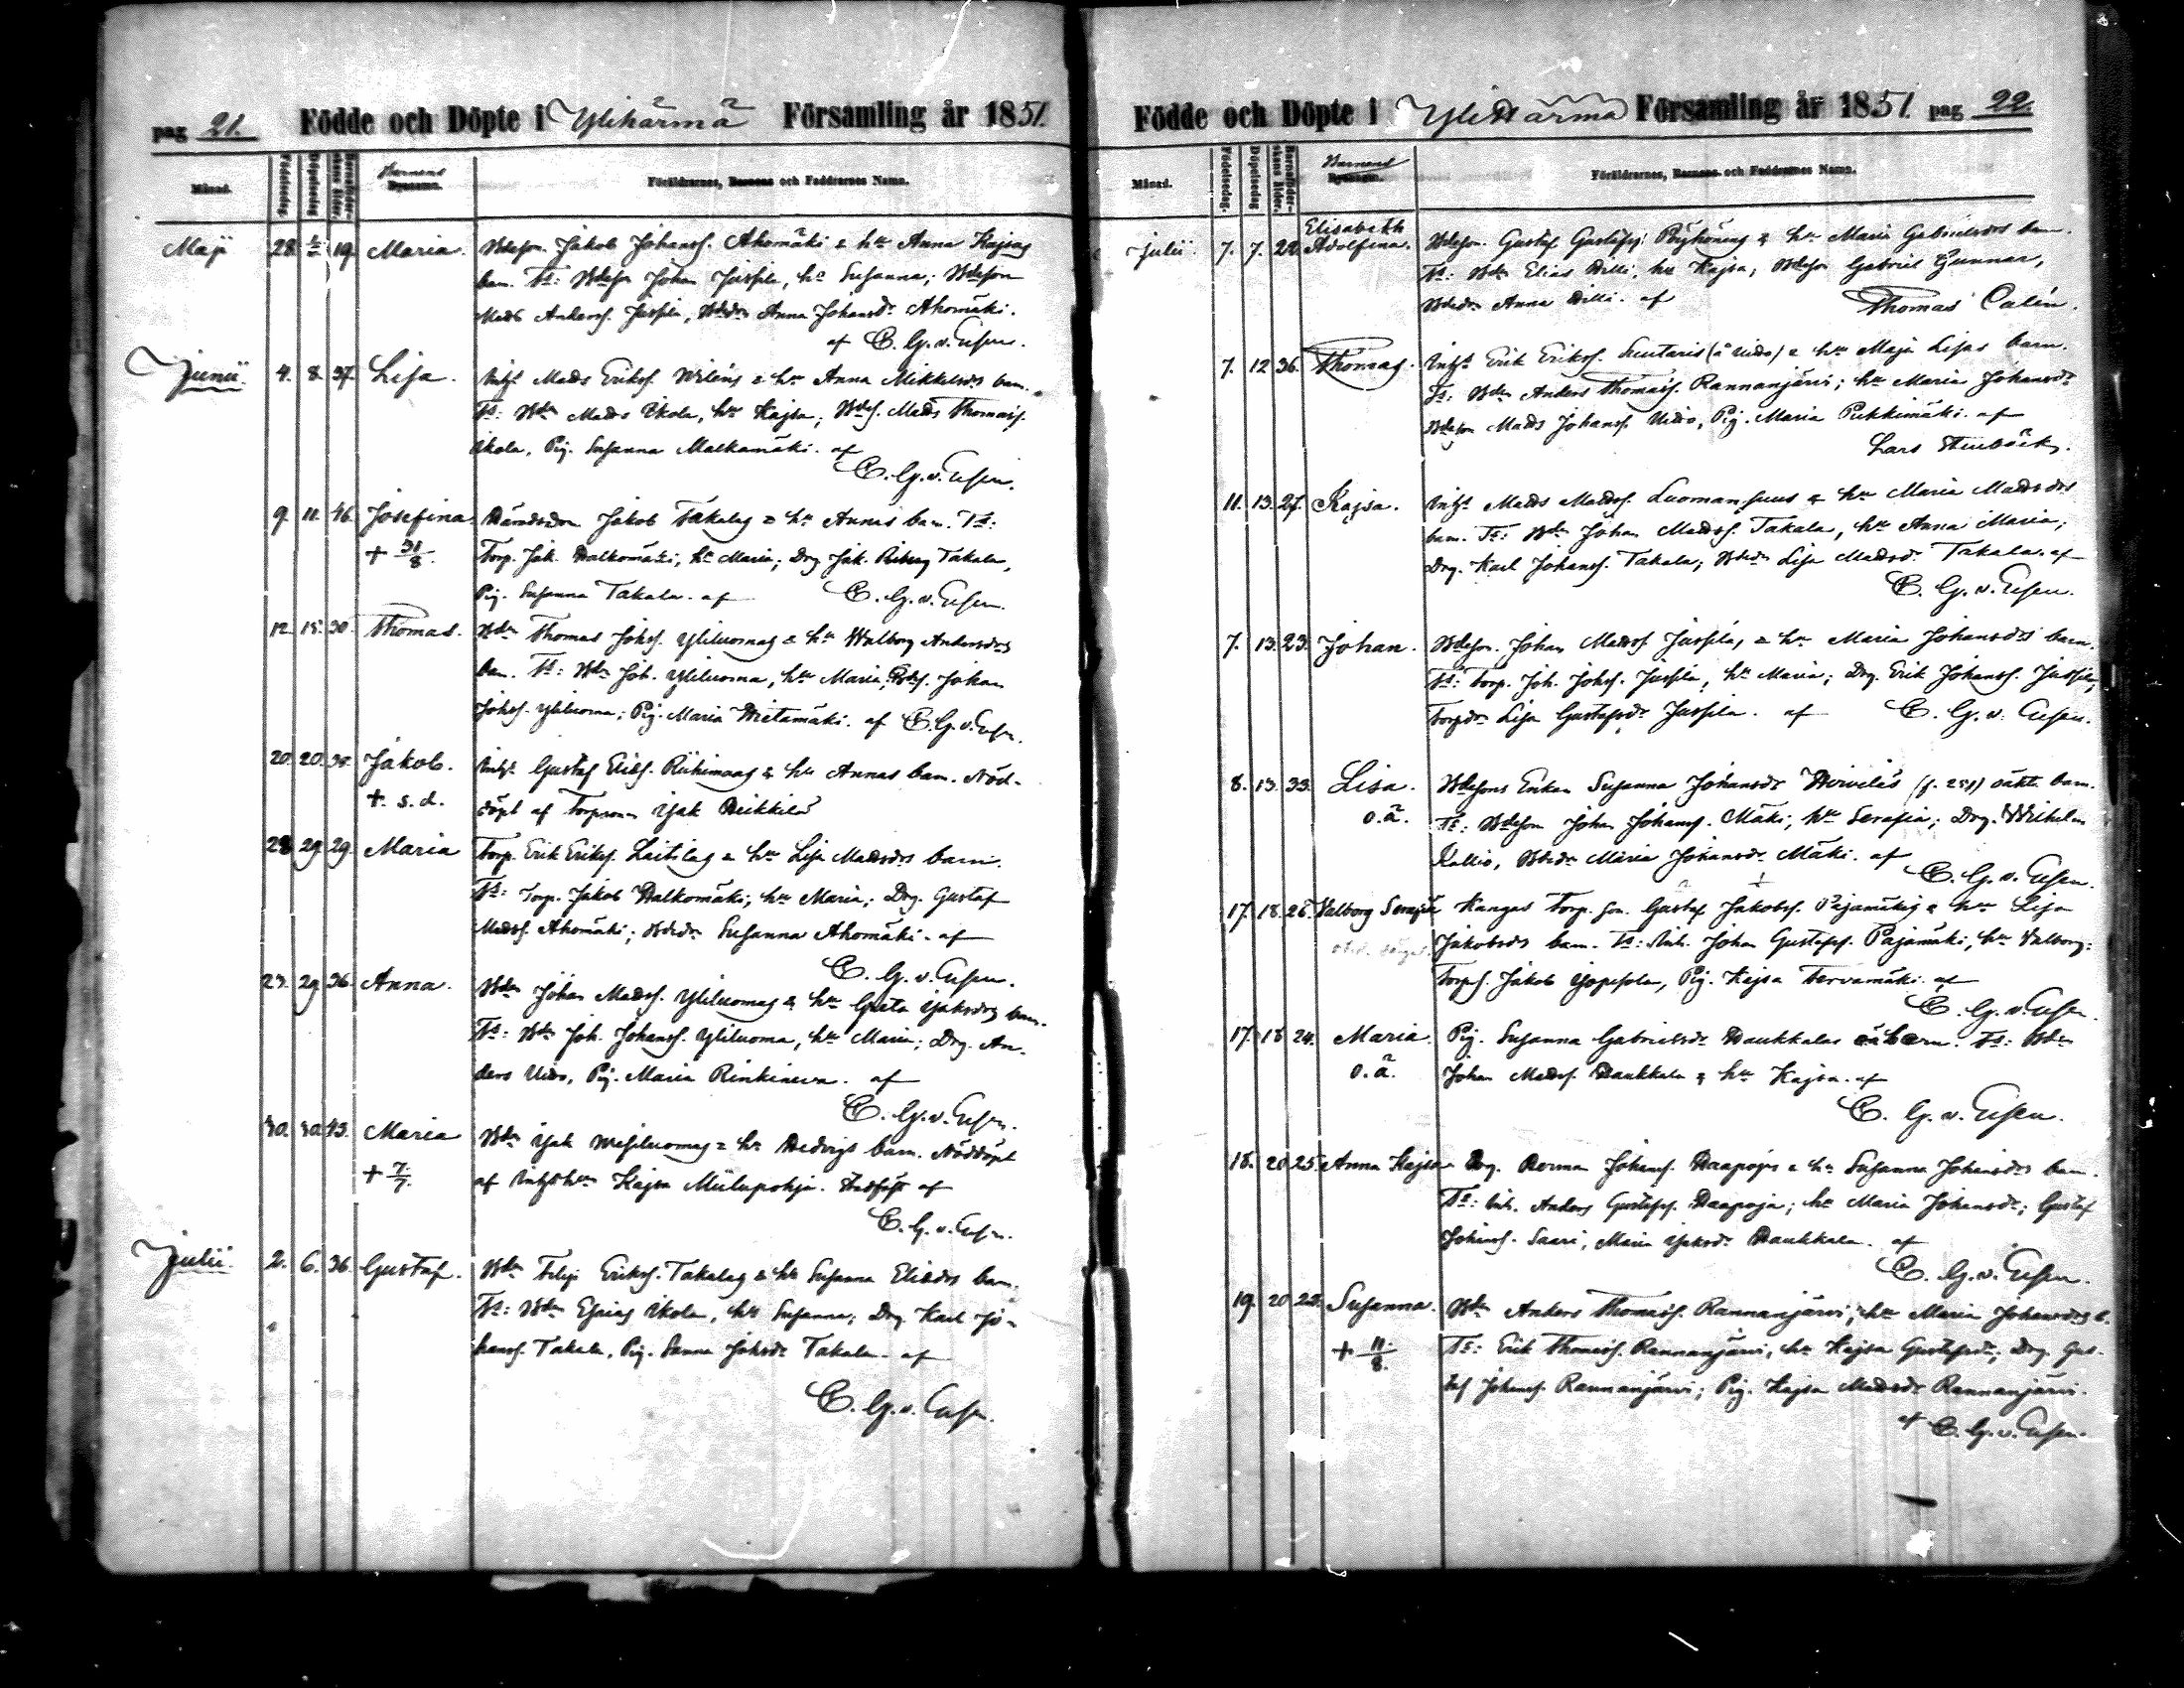 pag 21. Födde och Döpte i Ylihärmä Församling år 1851.
Månad. Födelsedag. Döpelsedag Barnaföderskans ålder. Barnens Bynamn. Föräldrarnes, Barnens och Faddrarnes Namn.
Maji 28. 19 Maria. Bdeson. Jakob Johanss. Ahomäki & hu Anna Kajsas
barn. Ts: Bdeson Johan Jussila, hu Susanna; Bdeson
Mads Anderss. Jussila, Bdedr Anna Johansdr Ahomäki.
af C. G. v. Essen.
Junii. 4. 8. 37. Lisa. Inhs Mads Erikss. & hu Anna Mikkelsdrs barn.
Ts: Bdn Mads Ekola, hu Kajsa; Bdes. Mads Thomass.
Ekola, Pig. Susanna Malkamäki. af
C. G. v. Essen.
9. 11. 46. Josefina Jakob Takalas & hu Annas barn. Ts:
+ 31/8. Torp. Jak. Walkomäki, hu Maria; Drg Jak. Takala,
Pig. Susanna Takala. af C. G. v. Essen.
12. 15. 30. Thomas. Bdn Thomas Johss. Yliluomas & hu Walborg Andersdrs
barn. Ts: Bdn Joh. Yliluoma, hu Maria; Bdes. Johan
Johss. Yliluoma; Pig. Maria Hietamäki. af C. G. v. Essen.
20. 20. 35. Jakob. Inhs Gustaf Erikss. Riihimaas & hu Annas barn. Nöd-
+. s. d. döpt af Torpson Isak Heikkilä
28 29. 29. Maria Torp. Erik Erikss. Laitilas & hu Lisa Madsdrs barn.
Ts: Torp. Jakob Walkomäki, hu Maria; Drg. Gustaf
Madss. Ahomäki; Bdedr Susanna Ahomäki. af
C. G. v. Essen.
23. 29. 36. Anna. Bdn Johan Madss. Yliluomas & hu Greta Isaksdrs barn.
Ts: Bdn Joh. Johanss. Yliluoma, hu Maria; Drg. An-
ders Uitto, Pig. Maria Rinkineva. af
C. G. v. Essen.
30. 30. 43. Maria Bdn Isak & hu Hedvigs barn. Nöddöpt
+ 7/7. af Inhs hu Kajsa Miilupohja. af
C. G. v. Essen.
Julii. 2. 6. 36. Gustaf. Bdn Erikss. Takalas & hu Susanna Eliædrs barn.
Ts: Bdn Esaias Ekola, hu Susanna; Drg. Karl Jo-
hanss. Takala, Pig. Sanna Johsdr Takala. af
C. G. v. Essen.
Födde och Döpte i Ylihärmä Församling år 1851. pag 22.
Månad. Födelsedag. Döpelsedag Barnaföderskans ålder. Barnens Bynamn. Föräldrarnes, Barnens och Faddrarnes Namn.
Julii. 7. 7. 22. Elisabeth Adolfina. Bdeson. Gustaf Gustafss. & hu Maria Gabrielsdrs barn.
Ts: Bdn Elias Willi, hu Kajsa, Bdeson Gabriel Gunnar,
Bdedr Anna Willi. af Thomas Calén.
7. 12 36. Thomas. Inhs Erik Erikss. Suutaris (å Uitto) & hu Maja Lisas barn.
Ts: Bdn Anders Thomass. Rannanjärvi; hu Maria Johansdr
Bdeson Mads Johanss. Uitto, Pig. Maria Pukkimäki. af
Lars
11. 13. 27. Kajsa. Inhs Mads Madss. Luomansuus & hu Maria Madsdrs
barn. Ts: Bdn Johan Madss. Takala, hu Anna Maria;
Drg. Karl Johanss. Takala; Bdedr Lisa Madsdr Takala. af
C. G. v. Essen.
7. 13. 23. Johan. Bdeson. Johan Madss. Jussilas & hu Maria Johansdrs barn.
Ts: Torp. Joh. Johss. Jussila, hu Maria; Drg. Erik Johanss. Jussila;
Torpdr Lisa Gustafsdr Jussila. af C. G. v. Essen.
8. 13. 33. Lisa. Bdesons Enkan Susanna Johansdr Hoivilas oäkta barn.
o. ä. Ts: Bdeson Johan Johanss. Mäki, hu Serafia; Drg. Wilhelm
Kallio, Bdedr Maria Johansdr Mäki. af
C. G. v. Essen.
17. 18. 26. Walborg Serafia Kangas Torp. son. Gustaf Jakobss. Pajamäkis & hu Lisa
Jakobsdrs barn. Ts: Inh. Johan Gustafss. Pajamäki, hu Walborg;
Torps. Jakob, Pig. Kajsa Tervamäki. af
C. G. v. Essen.
17. 18 24. Maria. Pig. Susanna Gabrielsdr Haukkalas oä barn. Ts: Bdn
o. ä. Johan Madss. Haukkala & hu Kajsa. af
C. G. v. Essen.
18. 20 25. Anna Kajsa Drg. Herman Johanss. Haapojas & hu Susanna Johansdrs barn.
Ts: Inh. Anders Gustafss. Haapoja; hu Maria Johansdr; Gustaf
Johanss. Saari, Maria Isaksdr Haukkala. af
C. G. v. Essen.
19. 20 22. Susanna. Bdn Anders Thomass. Rannanjärvi, hu Maria Johansdrs b.
+ 11/8. Ts: Erik Thomass. Rannanjärvi, hu Kajsa Gustafsdr; Drg. Gus-
taf Johanss. Rannanjärvi; Pig. Kajsa Madsdr Rannanjärvi.
af C. G. v. Essen.